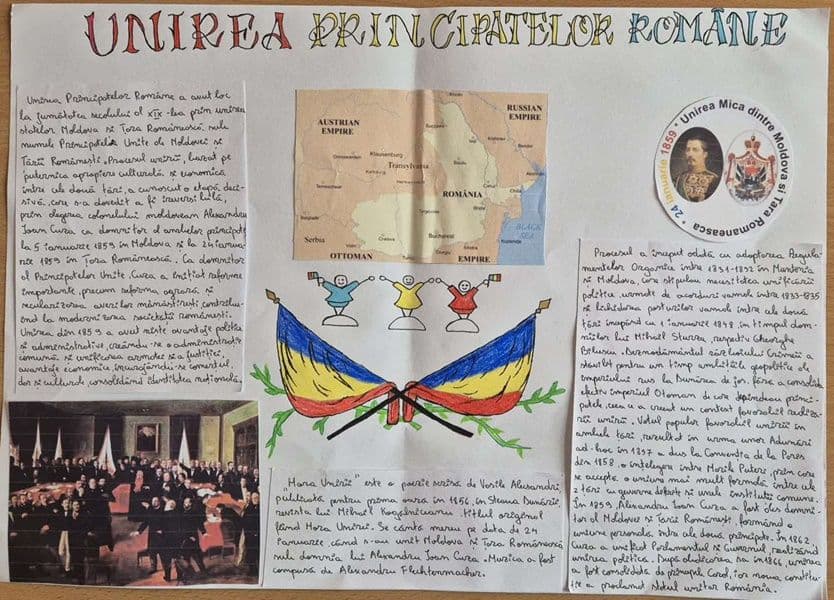 UNIREA PRINCIPATELOR ROMÂNE
Unirea Principatelor Române a avut loc
la jumătatea secolului al XIX-lea prin unirea
statelor Moldova și Țara Românească sub
numele Principatele Unite ale Moldovei și
Țării Românești. Procesul unirii, bazat pe
puternica apropiere culturală și economică
între cele două țări, a cunoscut o etapă deci-
sivă, care s-a dovedit a fi ireversibilă,
prin alegerea colonelului moldovean Alexandru
Ioan Cuza ca domnitor al ambelor principate
la 5 ianuarie 1859 în Moldova și la 24 ianua-
rie 1859 în Țara Românească. Ca domnitor
al Principatelor Unite, Cuza a inițiat reforme
importante, precum reforma agrară, și
secularizarea averilor mănăstirești, contribu-
ind la modernizarea societății românești.
Unirea din 1859 a avut niște avantaje politice
și administrative, creându-se o administrație
comună și unificarea armatei și a justiției,
avantaje economice, încurajându-se comerțul,
dar și culturale, consolidând identitatea națională.
AUSTRIAN
EMPIRE
RUSSIAN
EMPIRE
Klausenburg
Transylvania
ROMÂNIA
Bucharest
BLACK
SEA
Serbia
OTTOMAN
EMPIRE
24 ianuarie 1859 • Unirea Mica dintre Moldova si Tara Romaneasca •
"Hora Unirii" este o poezie scrisă de Vasile Alecsandri,
publicată pentru prima oară în 1856, în Steaua Dunării,
revista lui Mihail Kogălniceanu. Titlul original
fiind Hora Unirei. Se cântă mereu pe data de 24
ianuarie, când s-au unit Moldova și Țara Românească
sub domnia lui Alexandru Ioan Cuza. Muzica a fost
compusă de Alexandru Flechtenmacher.
Procesul a început odată cu adoptarea Regula-
mentelor Organice între 1831-1832 în Muntenia
și Moldova, care stipulau necesitatea unificării
politice, urmate de acorduri vamale între 1833-1835
și lichidarea posturilor vamale între cele două
țări începând cu 1 ianuarie 1848, în timpul dom-
niilor lui Mihail Sturza, respectiv Gheorghe
Bibescu. Deznodământul războiului Crimeii a
stăvilit pentru un timp ambițiile geopolitice ale
imperiului rus la Dunărea de jos, fără a consolida
efectiv imperiul Otoman de care depindeau princi-
patele, ceea ce a creat un context favorabil realiză-
rii unirii. Votul popular favorabil unirii în
ambele țări, rezultat în urma unor Adunări
ad-hoc în 1857 a dus la Convenția de la Paris
din 1858, o înțelegere între Marile Puteri, prin care
se accepta o uniune mai mult formală între cele
2 țări cu guverne diferite și unele instituții comune.
În 1859, Alexandru Ioan Cuza a fost ales domni-
tor al Moldovei și Țării Românești, formând o
uniune personală între cele două principate. În 1862,
Cuza a unificat Parlamentul și Guvernul, realizând
unirea politică. După abdicarea sa în 1866, unirea
a fost consolidată de principele Carol, iar noua constitu-
ție a proclamat statul unitar România.